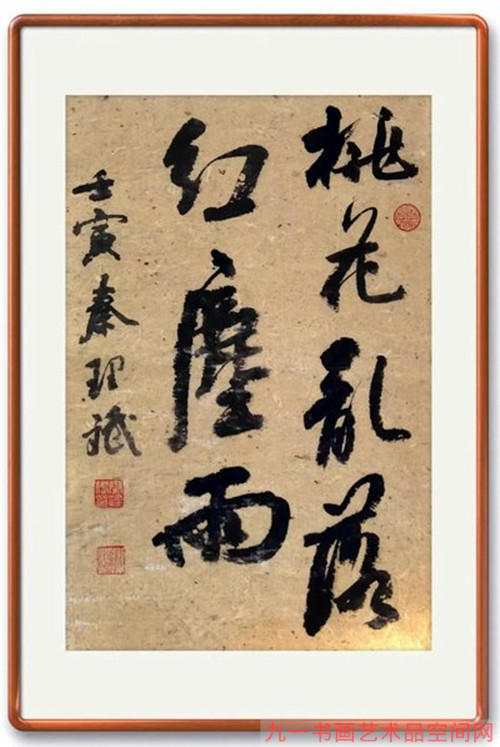 桃花乱落
红尘雨
壬寅秦理斌
九一书画艺术品空间网